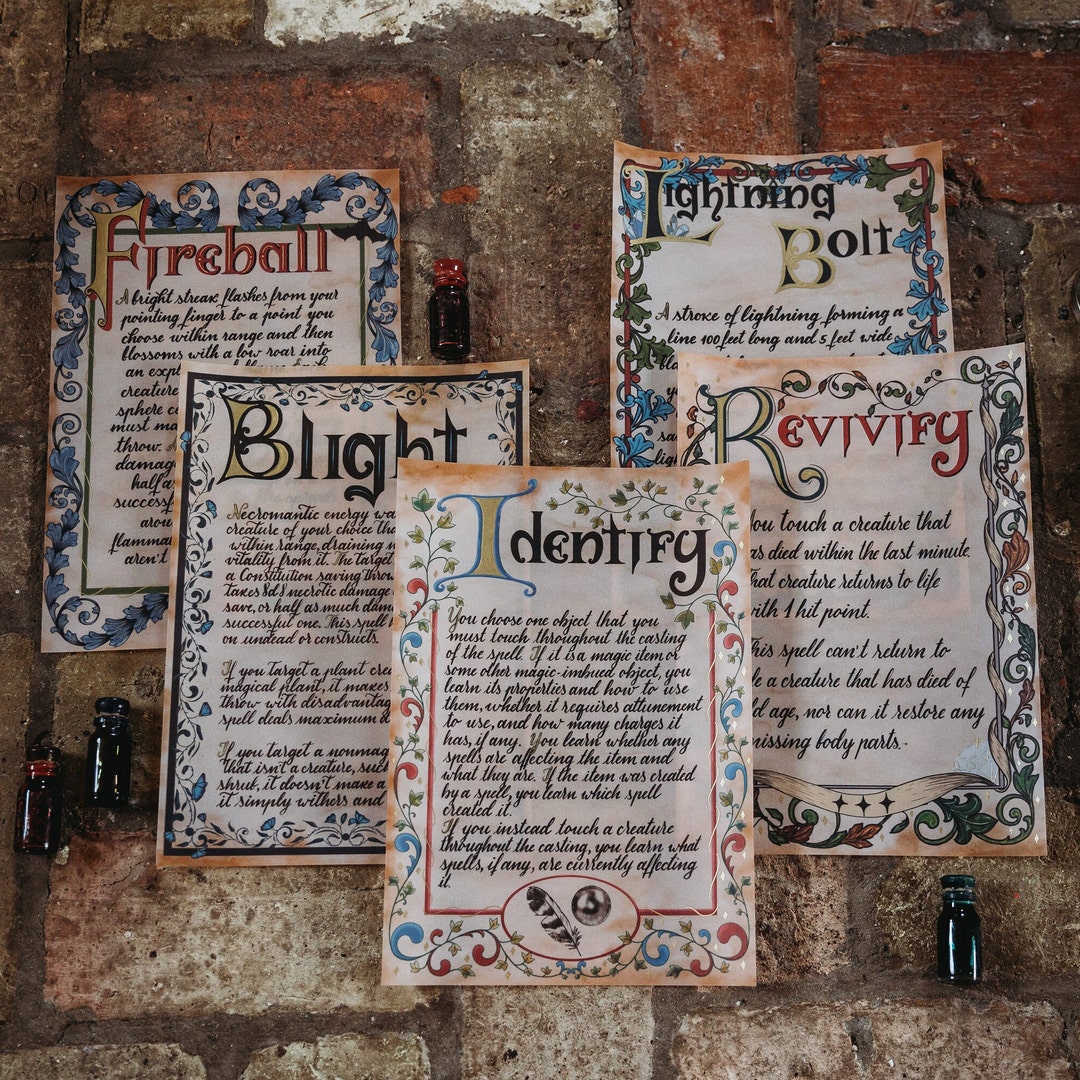 Fireball
A bright streak flashes from your
pointing finger to a point you
choose within range and then
blossoms with a low roar into
an
creature
sphere
must
throw.
damage
half
around
aren't
Lightning
Bolt
A stroke of lightning forming a
line 100 feet long and 5 feet wide
Blight
Necromantic energy
creature of your choice
within range, draining
vitality from it. The target
a Constitution saving throw
takes 8d8 necrotic damage
save, or half as much
successful one. This spell
on undead or constructs.
If you target a plant
magical plant, it makes
throw with disadvantage
spell deals maximum
If you target a
that isn't a creature,
shrub, it doesn't make a
it simply withers and
Revivify
You touch a creature that
has died within the last minute.
That creature returns to life
with 1 hit point.
This spell can't return to
a creature that has died of
age, nor can it restore any
missing body parts.
Identify
You choose one object that you
must touch throughout the casting
of the spell. If it is a magic item or
some other magic-imbued object, you
learn its properties and how to use
them, whether it requires attunement
to use, and how many charges it
has, if any. You learn whether any
spells are affecting the item and
what they are. If the item was created
by a spell, you learn which spell
created it.
If you instead touch a creature
throughout the casting, you learn what
spells, if any, are currently affecting
it.